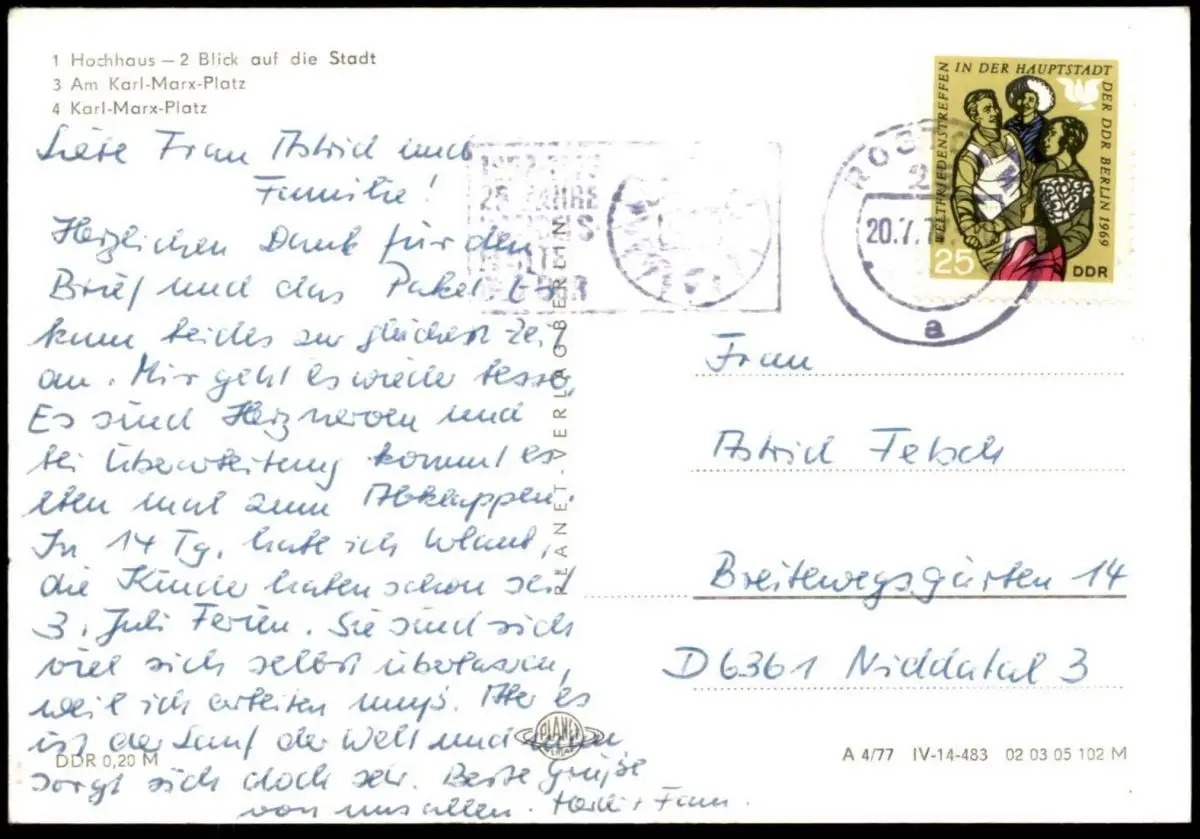 1 Hochhaus – 2 Blick auf die Stadt
3 Am Karl-Marx-Platz
4 Karl-Marx-Platz
Liebe Frau Astrid und
Familie!
Herzlichen Dank für den
Brief und das Paket. Es
kam beides zur gleichen Zeit
an. Mir geht es wieder besser,
Es sind Herznerven und
bei Überarbeitung kommt es
eben mal zum Abklappen.
In 14 Tg. habe ich Urlaub,
die Kinder haben schon seit
3. Juli Ferien. Sie sind sich
viel sich selbst überlassen,
weil ich arbeiten muß. Aber es
ist der Lauf der Welt und man
sorgt sich doch sehr. Beste Grüße
von uns allen. Fam.
DDR 0,20 M
PLANET-VERLAG BERLIN
PLANET
VERLAG
25 JAHRE
ROST
20.7.7
a
WELTFRIEDENSTREFFEN IN DER HAUPTSTADT DER DDR BERLIN 1969
25
DDR
Frau
Astrid Fetsch
Breitewegsgärten 14
D 6361 Niddatal 3
A 4/77 IV-14-483 02 03 05 102 M